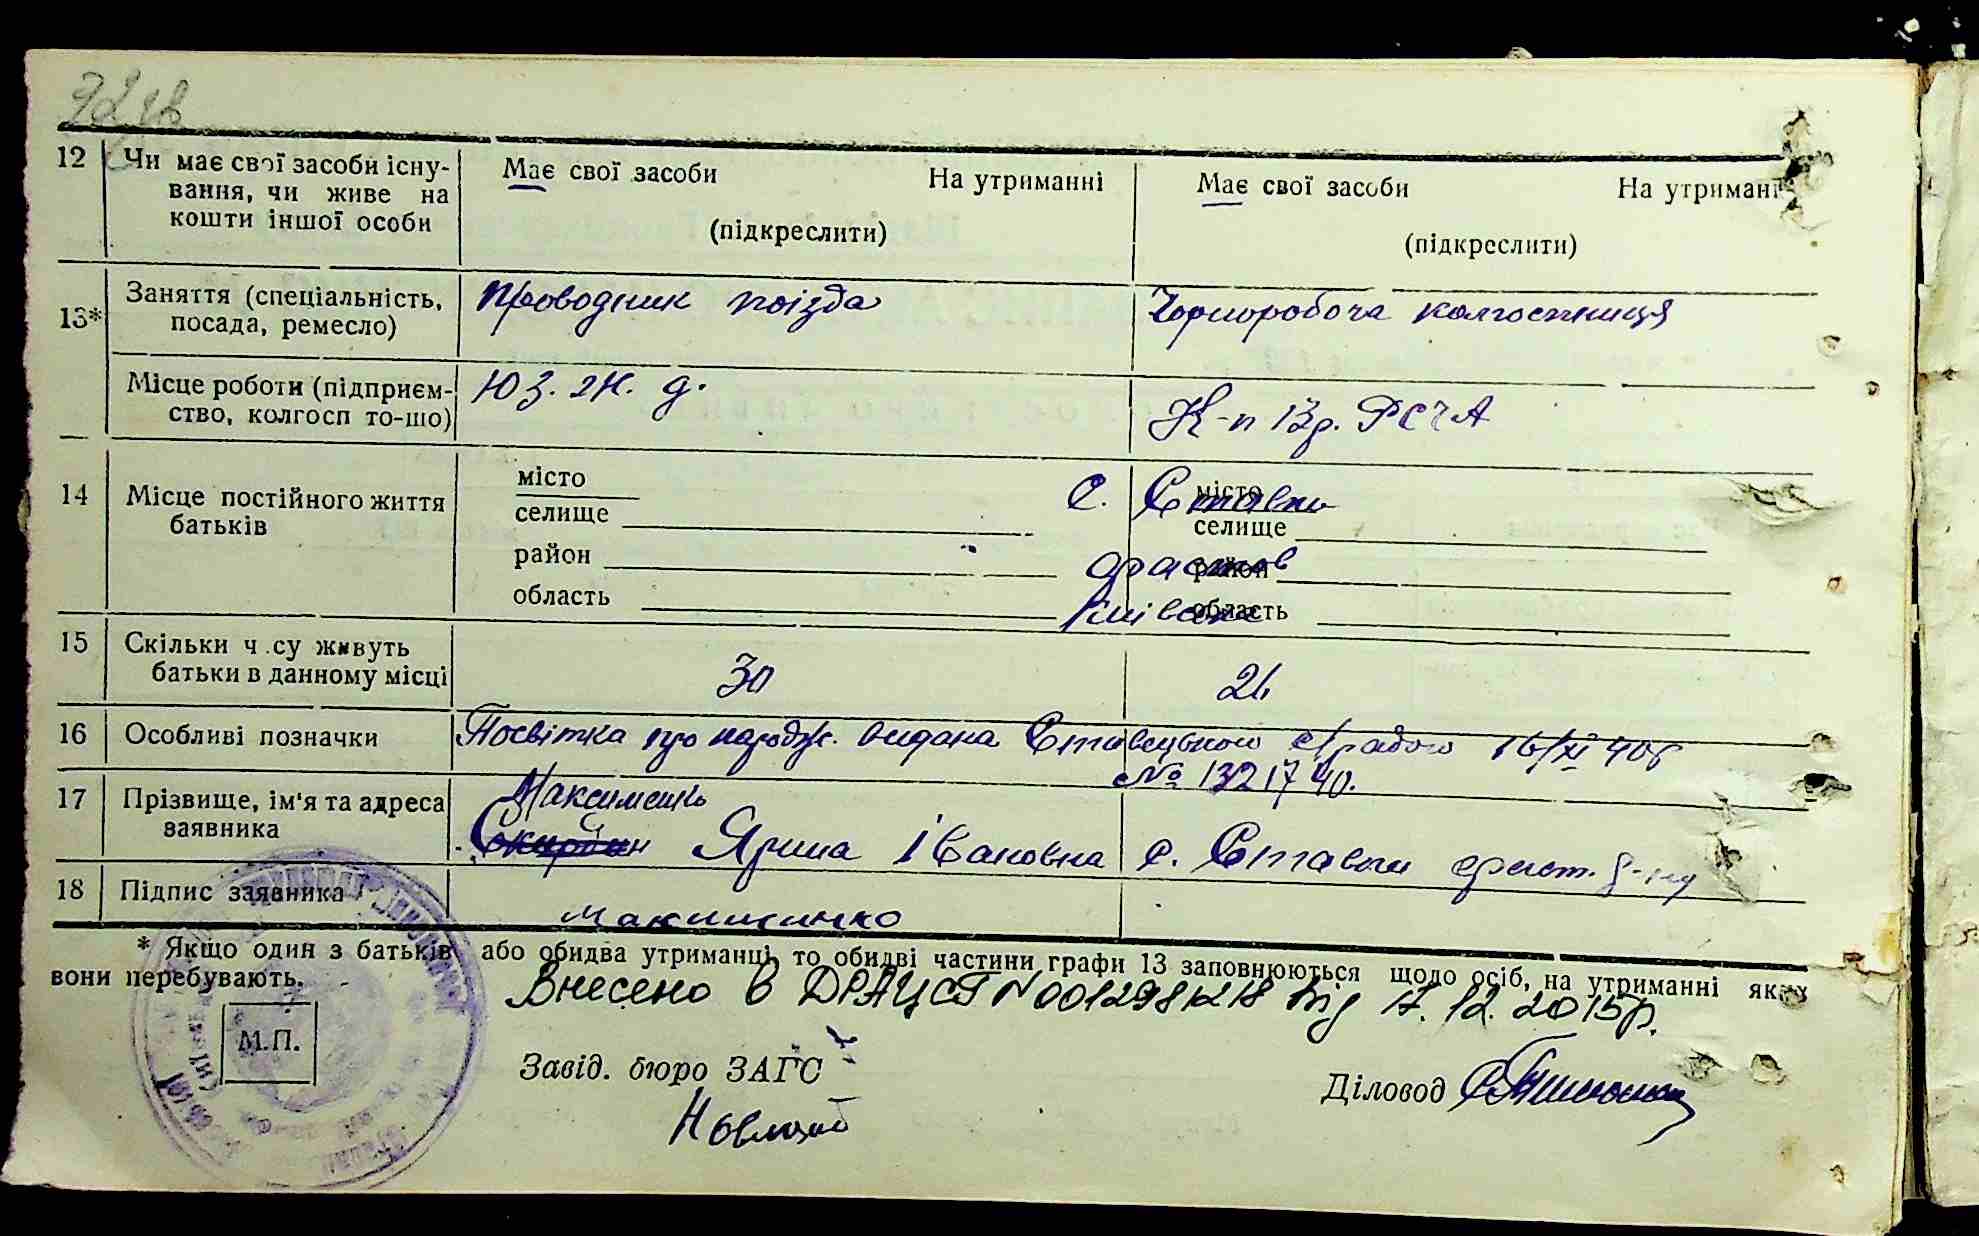 12 Чи має свої засоби існу- Має свої засоби На утриманні Має свої засоби На утриманн
вання, чи живе на
кошти іншої особи (підкреслити) (підкреслити)
13* Заняття (спеціальність, Проводник поїзда Чорноробоча колгоспниця
посада, ремесло)
Місце роботи (підприєм- Юз. ж. д. К-п 13 р. РСЧА
ство, колгосп то-що)
14 Місце постійного життя місто с. Ставки місто
батьків селище селище
район фастов район
область Київська область
15 Скільки ч су живуть
батьки в данному місці 30 26
16 Особливі позначки Посвітка про народж. видана Ставецькою с/радою 16/XI 40р
№ 1321740.
17 Прізвище, ім'я та адреса Максименко
заявника Ярина Івановна с. Ставки фаст. р-ну
18 Підпис заявника Максименко
* Якщо один з батьків або обидва утриманці, то обидві частини графи 13 заповнюються щодо осіб, на утриманні яких
вони перебувають.
Внесено в ДРАЦСГ № 0012981218 від 17.12.2015р.
М.П.
Завід. бюро ЗАГС
Діловод